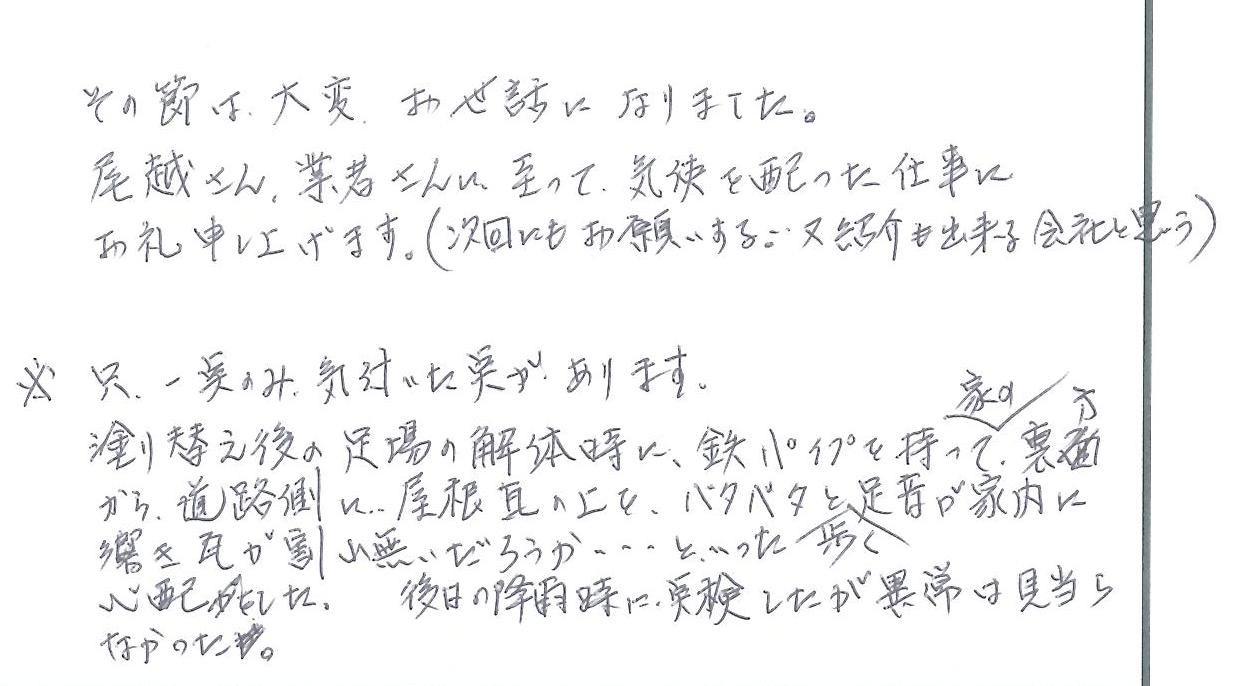 その節は、大変、お世話になりました。
尾越さん、業者さんに、至って、気使を配った仕事に
お礼申し上げます。(次回にもお願いする… 又紹介も出来る会社と思う)
※ 只、一点のみ、気付いた点が、あります。
塗り替え後の足場の解体時に、鉄パイプを持って、家の裏方
から、道路側に、屋根瓦の上を、バタバタと歩く足音が家内に
響き瓦が割れ無いだろうか・・・といった
心配がした。 後日の降雨時に、点検したが異常は見当ら
なかった。